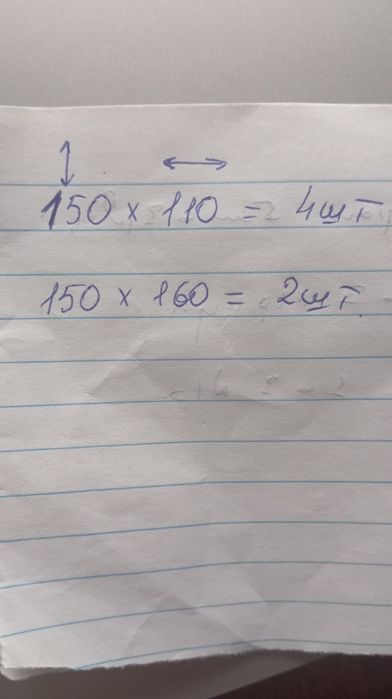 ↕ ↔
150 x 110 = 4шт
150 x 160 = 2шт